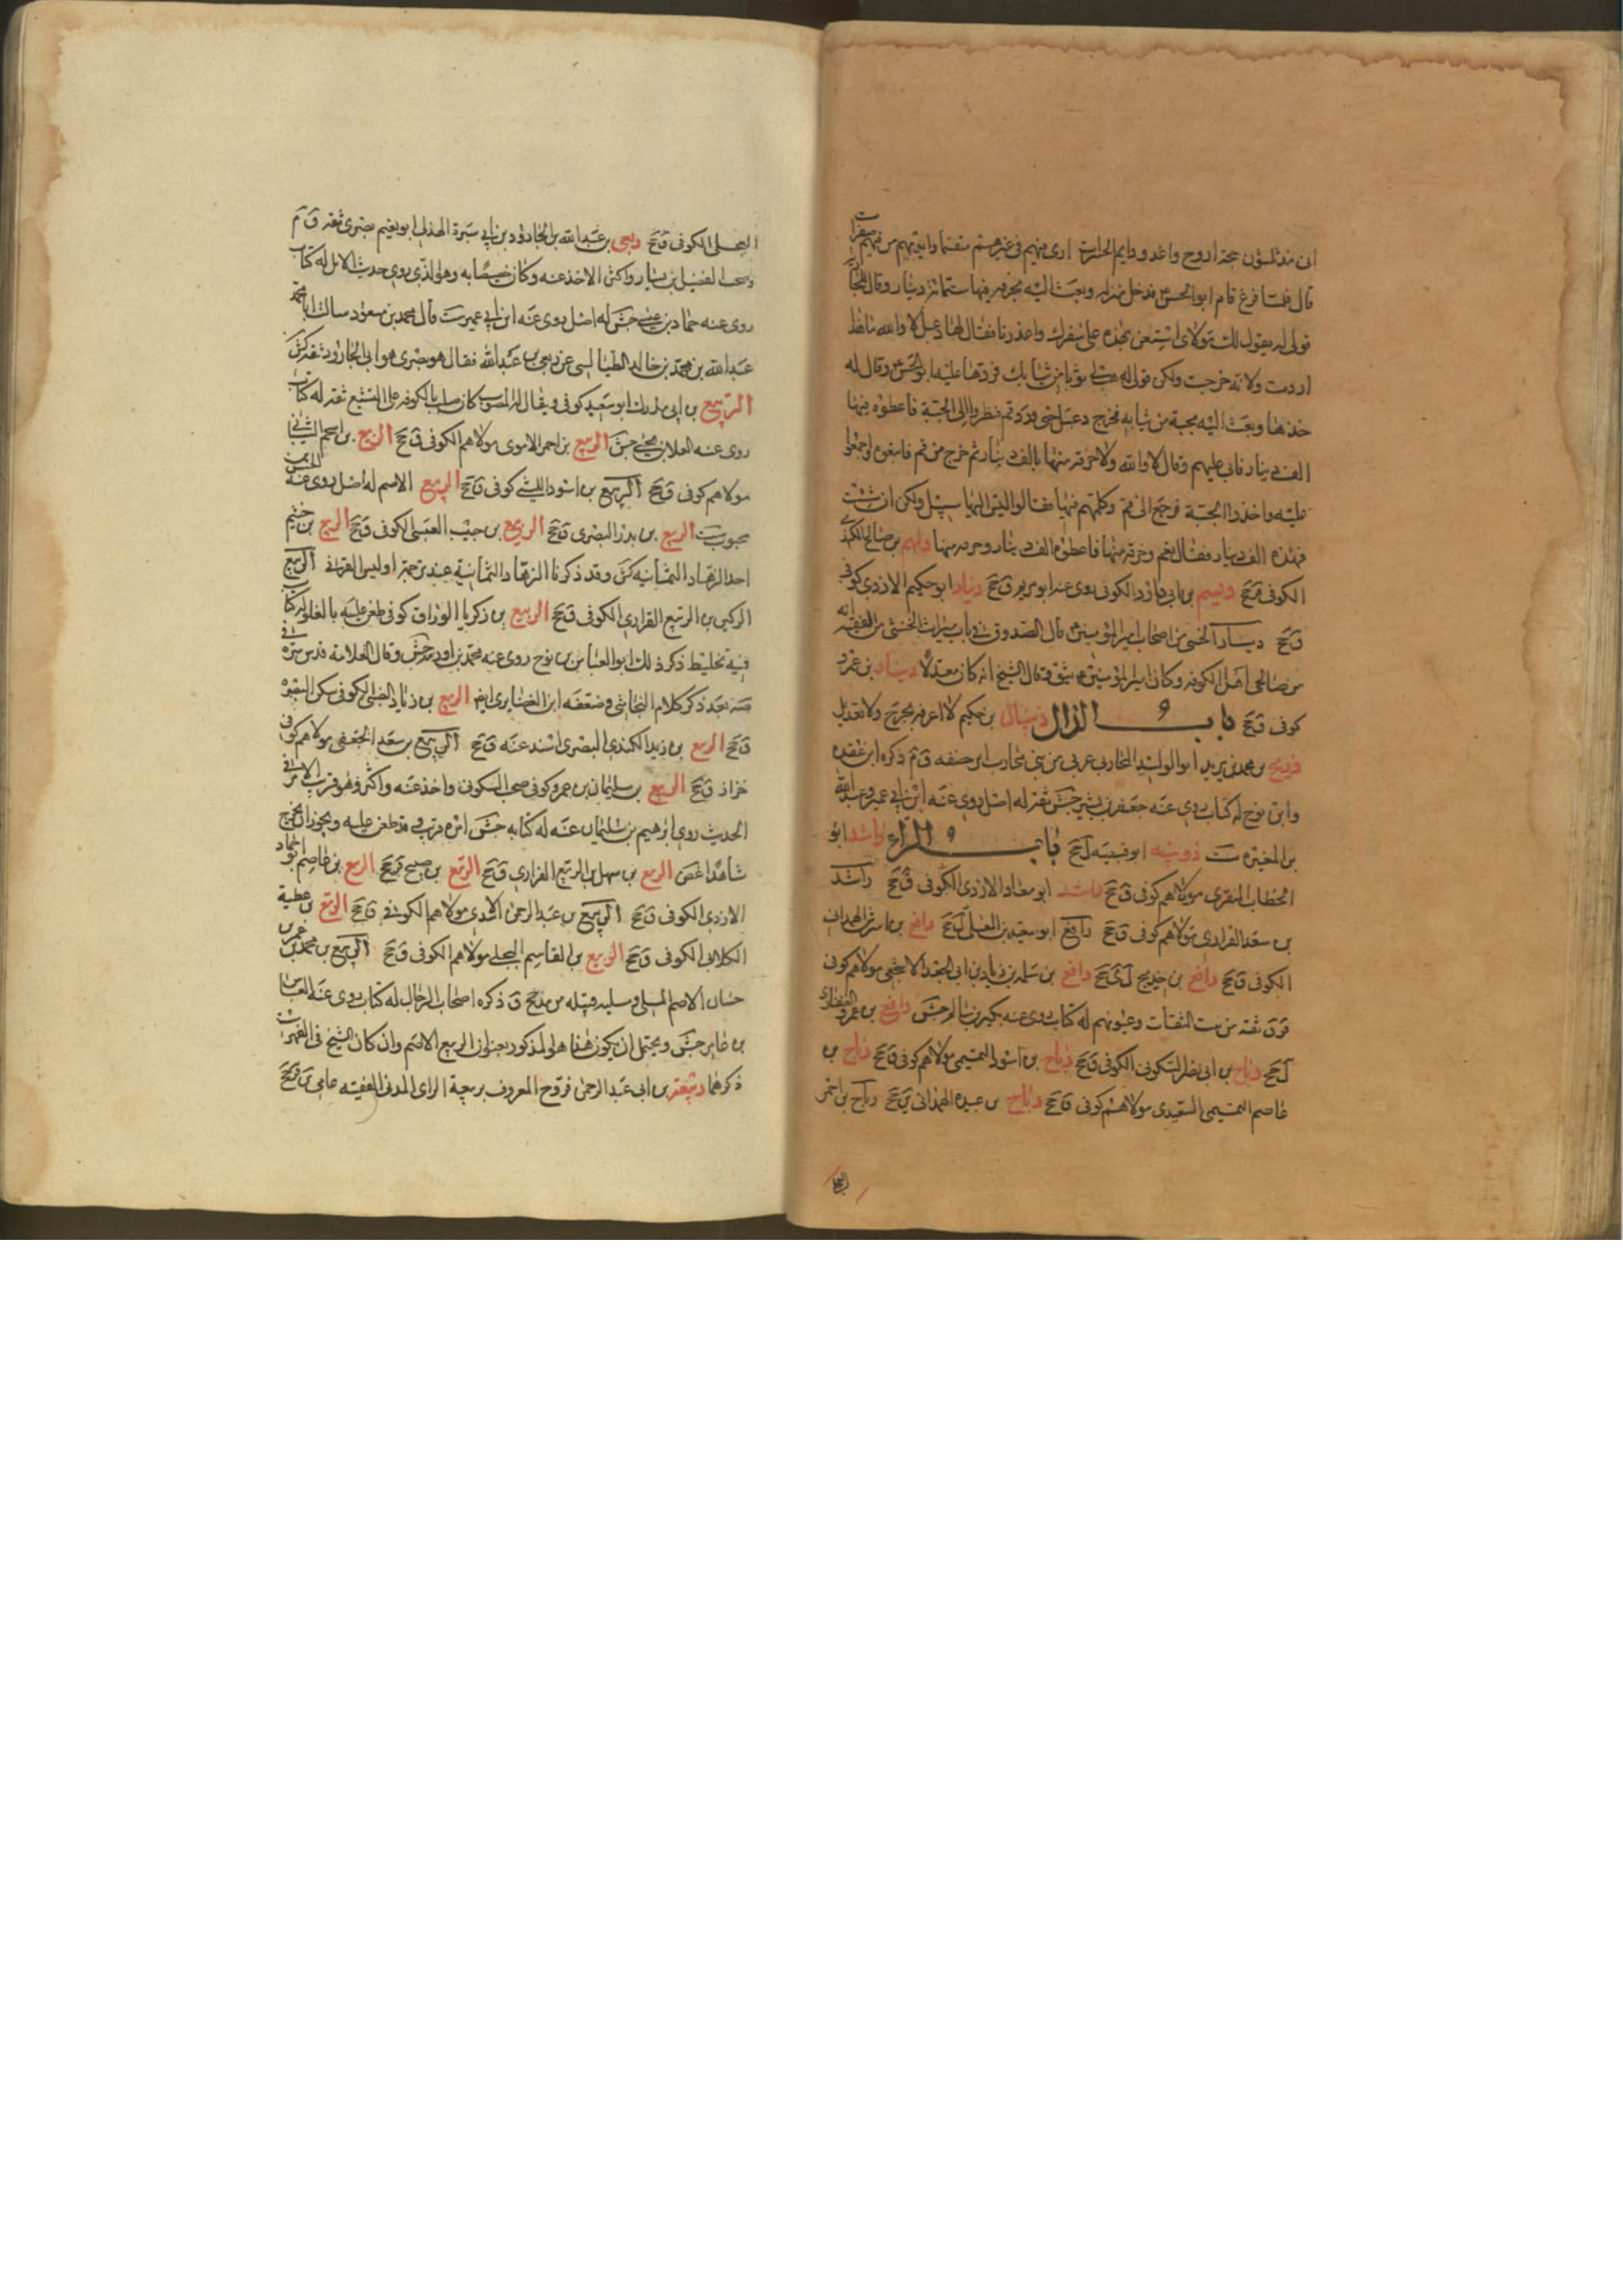 ان منذ ثلثون حجة اروح واغدو ودايم الحسرات ارى فيئهم فى غيرهم متقسما وايديهم من فيئهم صفرات
قال فلما فرغ قام ابو الحسن فدخل منزله وبعث اليه بخرقة فيها ستمائة دينار وقال للجارية
قولى له يقول لك مولاى استعن بهذه على سفرك واعذرنا فقال لها دعبل لا والله ما هذا
اردت ولا له خرجت ولكن قولى له هب لى ثوبا من ثيابك فردها عليه ابو الحسن وقال له
خذها وبعث اليه بجبة من ثيابه فخرج دعبل حتى ورد قم فنظروا الى الجبة فاعطوه فيها
الف دينار فابى عليهم وقال لا والله ولا خرقة منها بالف دينار ثم خرج من قم فاتبعوه وجمعوا
عليه واخذوا الجبة فرجع الى قم وكلمهم فيها فقالوا ليس اليها سبيل ولكن ان شئت
فهذه الف دينار فقال نعم وخرقة منها فاعطوه الف دينار وخرقة منها دلهم بن صالح الكندى
الكوفى ق جخ ديسم بن ابى داود الكوفى روى عنه ابو مريم ق جخ دينار ابو حكيم الازدى كوفى
ق جخ دينار الخصى من اصحاب امير المؤمنين قال الصدوق فى باب ميراث الخنثى من الفقيه انه
من صالحى اهل الكوفة وكان امير المؤمنين يثق به قال الشيخ انه كان معدلا دينار بن عمرو
كوفى ق جخ باب الذال ذبيان بن حكيم لا اعرفه بجرح ولا تعديل
ذريح بن محمد بن يزيد ابو الوليد المحاربى عربى من بنى محارب بن خصفة ق م ذكره ابن عقدة
وابن نوح له كتاب روى عنه جعفر بن بشير جش ثقة له اصل روى عنه ابن ابى عمير وعبد الله
بن المغيرة ست ذويبه ابو قبيصه ل جخ باب الراء راشد ابو
الخطاب المنقرى مولاهم كوفى ق جخ راشد ابو معاذ الازدى الكوفى ق جخ راشد
بن سعد الفزارى مولاهم كوفى ق جخ رافع ابو سعيد بن المعلى ل جخ رافع بن اشرس الهمدانى
الكوفى ق جخ رافع بن خديج ل ى جخ رافع بن سلمة بن زياد بن ابى الجعد الاشجعى مولاهم كوفى
قر ق ثقة من بيت الثقات وعيونهم له كتاب روى عنه بكر بن سالم جش رافع بن عمرو الغفارى
ل جخ رباح بن ابى نصر السكونى الكوفى ق جخ رباح بن اسود التميمى مولاهم كوفى ق جخ رباح بن
عاصم التميمى السعيدى مولاهم كوفى ق جخ رباح بن عبيدة الهمدانى ق جخ رباح بن احمر
البجلى الكوفى ق جخ ربعى بن عبد الله بن الجارود بن ابى سبرة الهذلى ابو نعيم بصرى ثقة ق م
وصحب الفضيل بن يسار واكثر الاخذ عنه وكان خصيصا به وهو الذى روى حديث الابل له كتاب
روى عنه حماد بن عيسى جش له اصل روى عنه ابن ابى عمير ست قال محمد بن مسعود سالت ابا محمد
عبد الله بن محمد بن خالد الطيالسى عن ربعى بن عبد الله فقال هو بصرى هو ابن الجارود ثقة كش
الربيع بن ابى مدرك ابو سعيد كوفى ويقال له المصلوب كان صلب بالكوفة على التشيع ثقة له كتاب
روى عنه العلا بن يحيى جش الربيع بن احمر الاموى مولاهم الكوفى ق جخ الربيع بن اسحم الشيبانى
مولاهم كوفى ق جخ الربيع بن اسود الليثى كوفى ق جخ الربيع الاصم له اصل روى عنه الحسن بن
محبوب ست الربيع بن بدر البصرى ق جخ الربيع بن حبيب العبسى الكوفى ق جخ الربيع بن خثيم
احد الزهاد الثمانيه كش وقد ذكرنا الزهاد الثمانية عند بن خبر اويس القرنى الربيع
الركين بن الربيع الفزارى الكوفى ق جخ الربيع بن زكريا الوراق كوفى طعن عليه بالغلو له كتاب
فيه تخليط ذكر ذلك ابو العباس بن نوح روى عنه محمد بن اورمه جش وقال العلامة قدس سره فى
صه بعد ذكر كلام النجاشى وضعفه ابن الغضايرى ايضا الربيع بن زياد الضبى الكوفى سكن البصرة
ق جخ الربيع بن زيد الكندى البصرى اسند عنه ق جخ الربيع بن سعد الجعفى مولاهم كوفى
خزاز ق جخ الربيع بن سليمان بن عمرو كوفى صحب السكونى واخذ عنه واكثر وهو قريب الامر فى
الحديث روى ابراهيم بن سليمان عنه له كتابه جش امره قريب قد طعن عليه ويجوز ان يخرج
شاهدا غض الربيع بن سهل بن الربيع الفزارى ق جخ الربيع بن صبيح ق جخ الربيع بن عاصم ابو حماد
الازدى الكوفى ق جخ الربيع بن عبد الرحمن الاسدى مولاهم الكوفى ق جخ الربيع بن عطية
الكلابى الكوفى ق جخ الربيع بن القاسم البجلى مولاهم الكوفى ق جخ الربيع بن محمد بن عمر بن
حسان الاصم المسلى ومسلية قبيلة من مذحج ق ذكره اصحاب الرجال له كتاب روى عنه العباس
بن عامر جش ويحتمل ان يكون هذا هو المذكور بعنوان الربيع الاصم وان كان الشيخ فى الفهرست
ذكرهما ربيعة بن ابى عبد الرحمن فروخ المعروف بربيعة الراى المدنى الفقيه عامى ين ق جخ